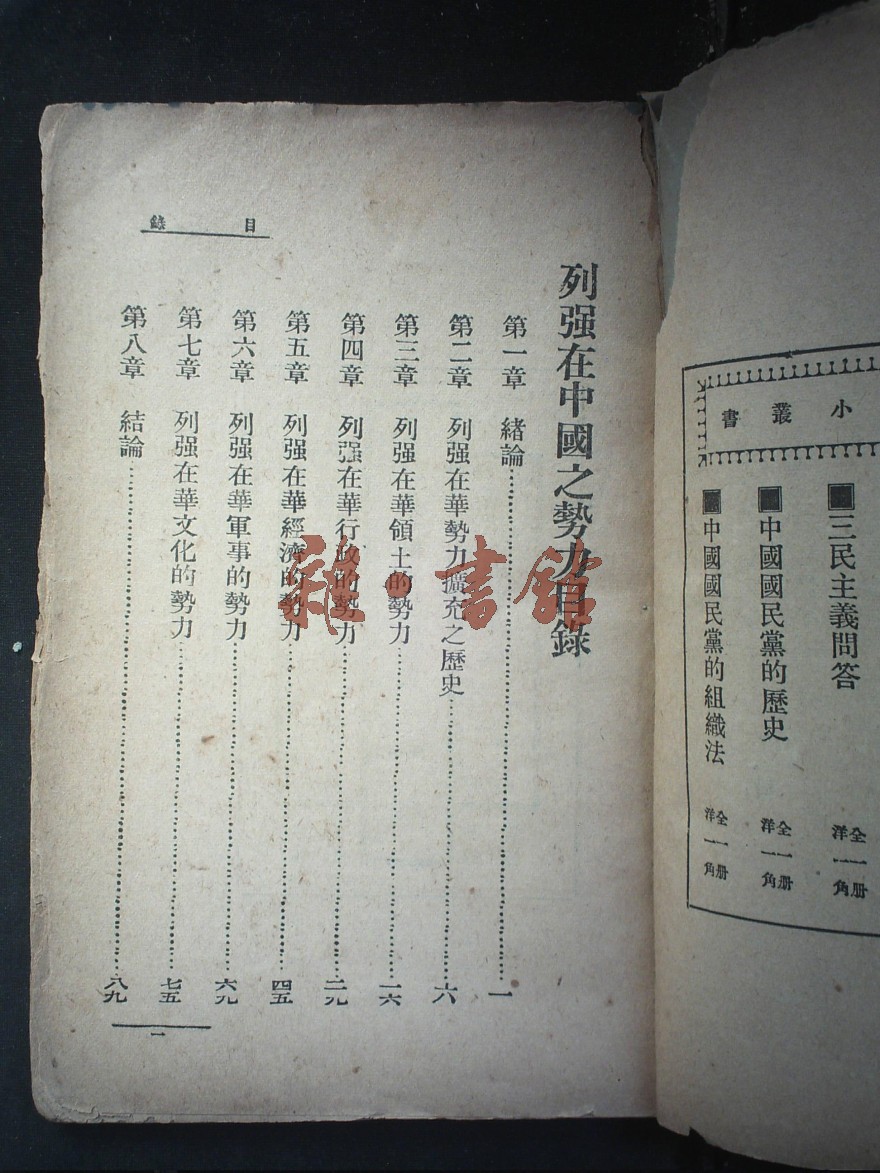 小叢書
■三民主義問答 全一册 洋一角
■中國國民黨的歷史 全一册 洋一角
■中國國民黨的組織法 全一册 洋一角
目錄
列强在中國之勢力目錄
第一章 緒論……………………一
第二章 列强在華勢力擴充之歷史……………………六
第三章 列强在華領土的勢力……………………一六
第四章 列强在華行政的勢力……………………二九
第五章 列强在華經濟的勢力……………………四五
第六章 列强在華軍事的勢力……………………六九
第七章 列强在華文化的勢力……………………七五
第八章 結論……………………八九
一
雜·書館